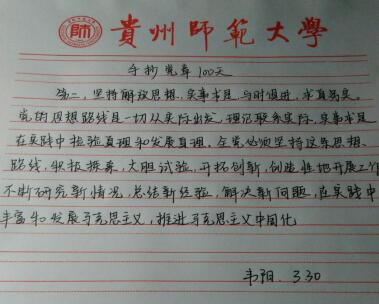 貴州師範大學
手抄党章100天
第二,坚持解放思想,实事求是,与时俱进,求真务实。
党的思想路线是一切从实际出发,理论联系实际,实事求是
在实践中检验真理和发展真理。全党必须坚持这条思想
路线,积极探索,大胆试验,开拓创新,创造性地开展工作
不断研究新情况,总结新经验,解决新问题,在实践中
丰富和发展马克思主义,推进马克思主义中国化
韦阳. 3.30